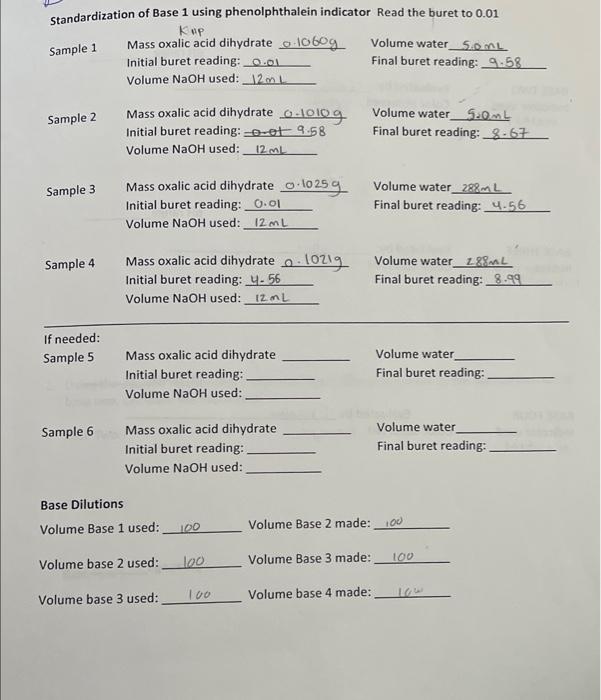 Standardization of Base 1 using phenolphthalein indicator Read the buret to 0.01
KHP
Sample 1 Mass oxalic acid dihydrate 0.1060g Volume water 5.0mL
Initial buret reading: 0.01 Final buret reading: 9.58
Volume NaOH used: 12mL
Sample 2 Mass oxalic acid dihydrate 0.1010g Volume water 5.0mL
Initial buret reading: 0.01 9.58 Final buret reading: 8.67
Volume NaOH used: 12mL
Sample 3 Mass oxalic acid dihydrate 0.1025g Volume water 288mL
Initial buret reading: 0.01 Final buret reading: 4.56
Volume NaOH used: 12mL
Sample 4 Mass oxalic acid dihydrate 0.1021g Volume water 288mL
Initial buret reading: 4.56 Final buret reading: 8.99
Volume NaOH used: 12mL
If needed:
Sample 5 Mass oxalic acid dihydrate Volume water
Initial buret reading: Final buret reading:
Volume NaOH used:
Sample 6 Mass oxalic acid dihydrate Volume water
Initial buret reading: Final buret reading:
Volume NaOH used:
Base Dilutions
Volume Base 1 used: 100 Volume Base 2 made: 100
Volume base 2 used: 100 Volume Base 3 made: 100
Volume base 3 used: 100 Volume base 4 made: